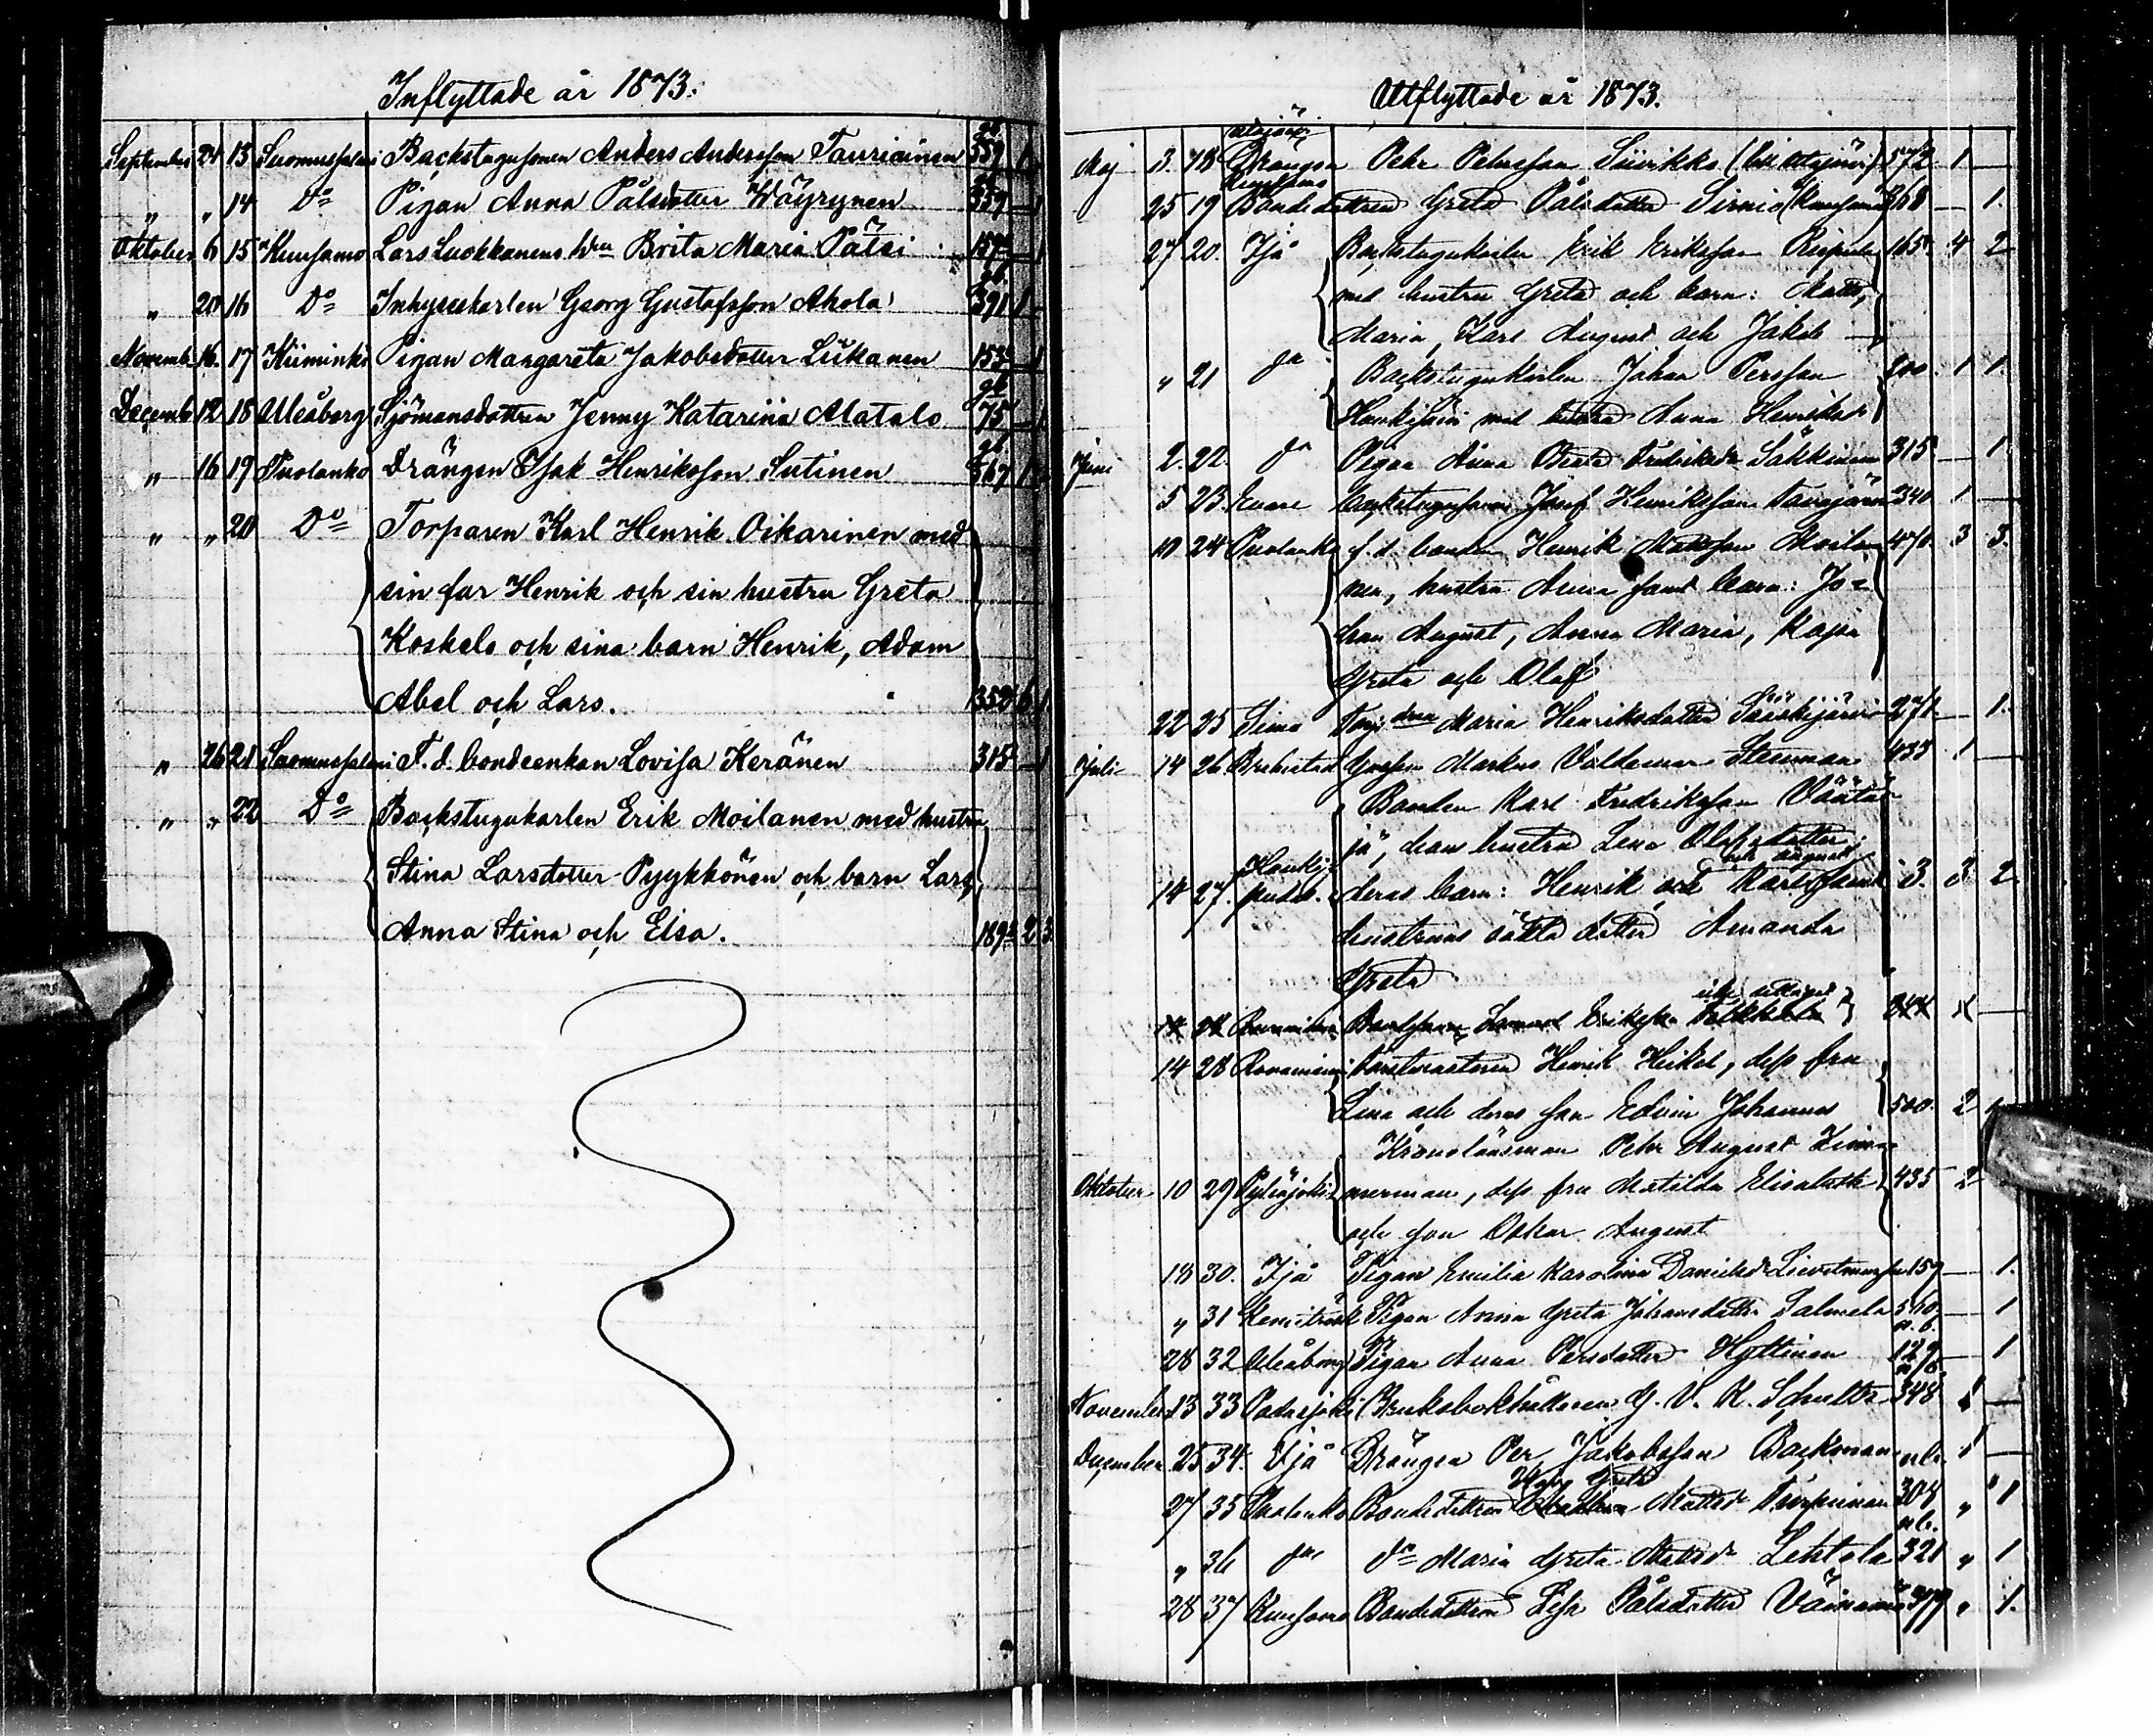 Inflyttade år 1873.
September 24 13 Suomussalmi Backstugusonen Anders Andersson Tauriainen 559 1
" " 14 Do Pigan Anna Pålsdotter Wäyrynen 559 — 1
Oktober 6 15 Kuusamo Lars Luokkanens Brita Maria Pätsi 159 — 1
" 20 16 Do Inhyseskarlen Georg Gustafsson Ahola 391 1
Novemb. 16. 17 Kiiminki Pigan Margareta Jakobsdotter Liikanen 153 — 1
Decemb. 12 18 Uleåborg Sjömansdottren Jenny Katarina Matalo 75 — 1
" 16 19 Puolanko Drängen Isak Henriksson Sutinen 567 1
" " 20 Do Torparen Karl Henrik Oikarinen med
sin far Henrik och sin hustru Greta
Koskelo och sina barn Henrik, Adam
Abel och Lars. 352 6 1
" 26 21 Suomussalmi F. d. bondeenkan Lovisa Keränen 315 — 1
" " 22 Do Backstugukarlen Erik Moilanen med hustru
Stina Larsdotter Pyykkönen och barn Lars,
Anna Stina och Elsa. 189 2 3
Utflyttade år 1873.
Maj 3. 18 Drängen Pehr Petersson Siivikko 572 1 —
Kuusamo
25 19 Bondedottren Greta Pålsdotter Sirniö (Kuusamo) 368 — 1.
27 20. Ijå Backstugukarlen Erik Eriksson 165 4 2
med hustru Greta och barn: Matts,
Maria, Karl August och Jakob —
" 21 do Backstugukarlen Johan Persson 1 1
med hustru Anna Henriksdr
Juni 2. 22. do Pigan Anna Beata Fredriksdr Säkkinen 315 — 1
5 23. Enare Backstugusonen Josef Henriksson 340 1 —
10 24 Puolanko f. d. bonden Henrik Mattsson Moila- 470 3 3.
nen, hustru Anna samt barn: Jo-
han August, Anna Maria, Kajsa
Greta och Olof
22 25 Simo Maria Henriksdotter Sääskijärvi 271 — 1.
Juli 14 26 Brahestad Gossen Markus Valdemar Stenman 433 1 —
Bonden Karl Fredriksson Väätä-
jä, hans hustru Lena Olofsdotter,
och August
14 27. Haukipudas deras barn: Henrik och Karl samt 3. 3 2
hustruns oäkta dotter Amanda
Greta
14 28 Rovaniemi Forstmästaren Henrik Heikel, dess fru
Lina och deras son Edvin Johannes 500. 2
Kronolänsman Pehr August Zim-
Oktober 10 29 Pyhäjoki merman, dess fru Matilda Elisabeth 435 2
och son Oskar August
18 30. Ijå Pigan Emilia Karolina Danielsdr 159 — 1.
" 31 Kemiträsk Pigan Anna Greta Johansdotter Salmela 560 — 1
28 32 Uleåborg Pigan Anna Persdotter Hyttinen 129 — 1
November 13 33 Padasjoki Bruksbokhållaren G. V. R. Schultz 348 1 —
December 25 34. Ijå Drängen Per Jakobsson Backman 1 —
Greta
27 35 Puolanko Bondedottren Mattsdr Turpeinen 308 " 1
" 36 do do Maria Greta Mattsdr Lehtola 321 " 1
28 37 Kuusamo Bondedottren Lisa Pålsdotter Väinämö 379 " 1.